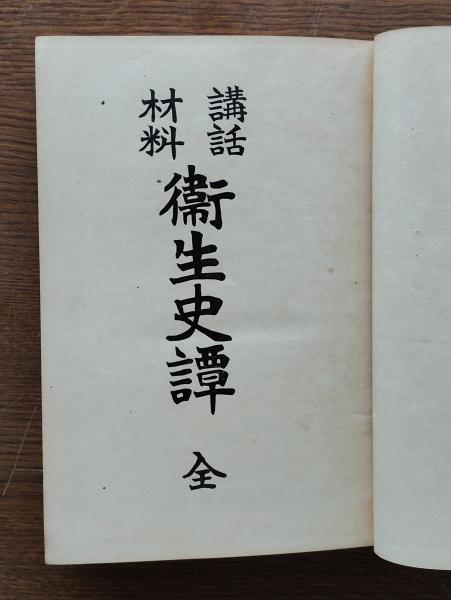 講話
材料
衞生史譚
全